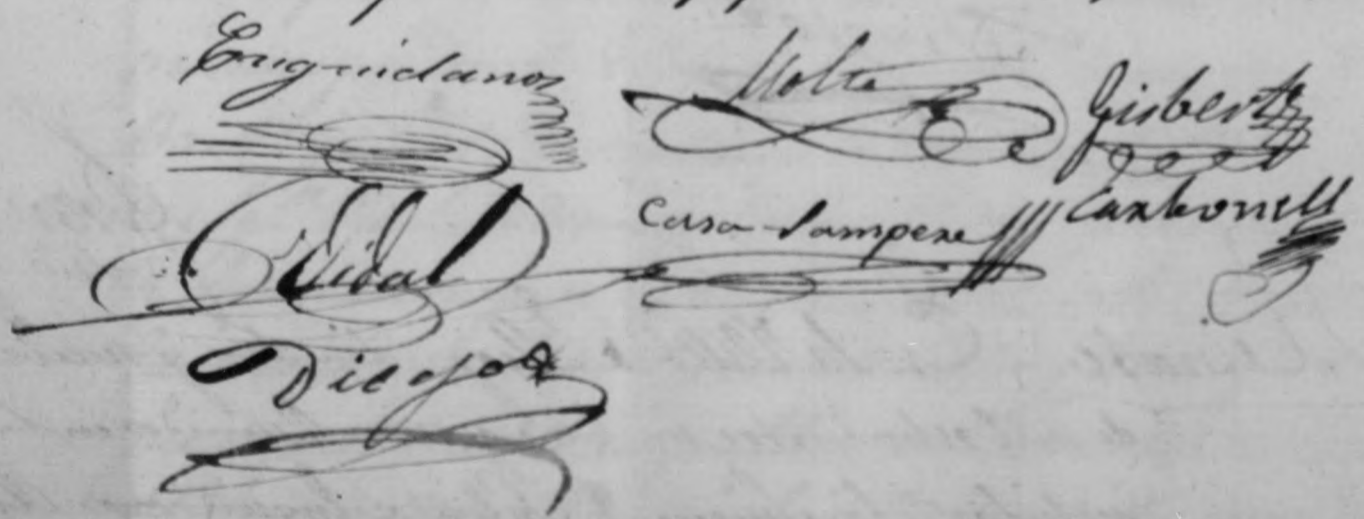 Enguidanos Molto Gisbert
Vidal Casa-Sampere Carbonell
Diego